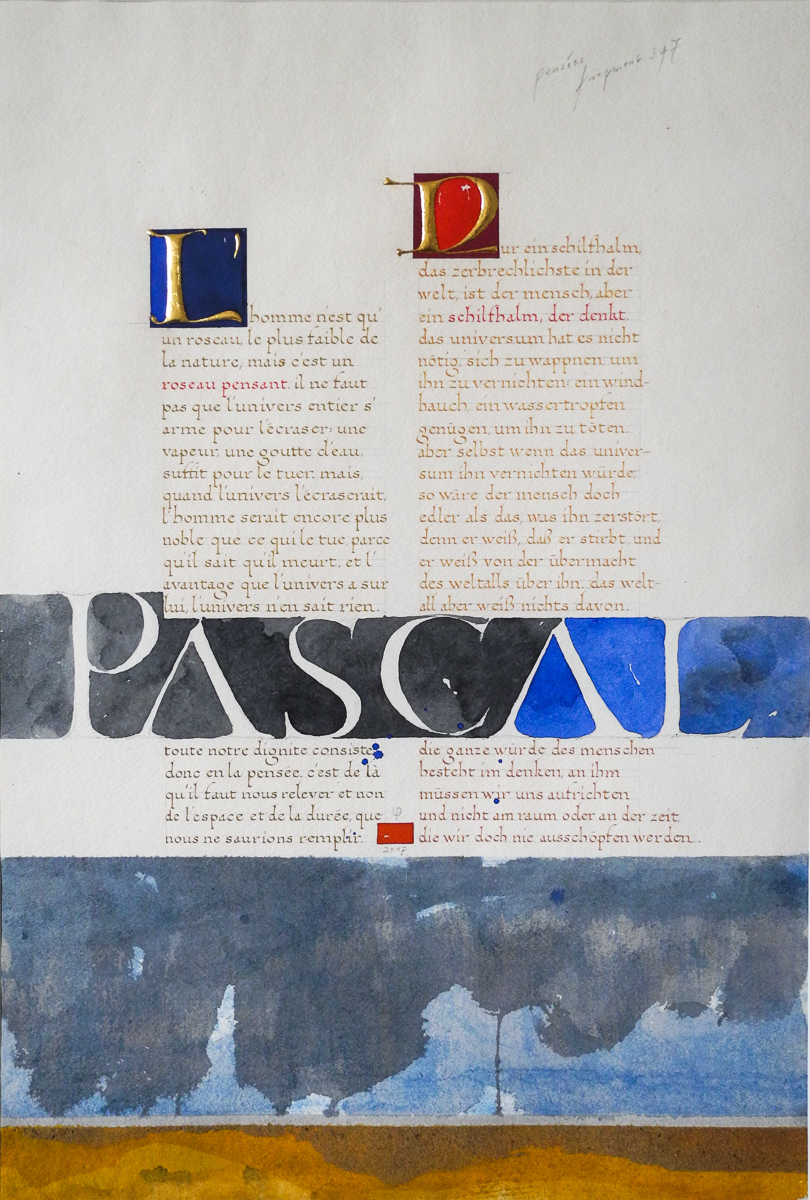 pensées
fragment 347
L'homme n'est qu'
un roseau, le plus faible de
la nature, mais c'est un
roseau pensant. il ne faut
pas que l'univers entier s'
arme pour l'écraser: une
vapeur, une goutte d'eau,
suffit pour le tuer. mais,
quand l'univers l'écraserait,
l'homme serait encore plus
noble que ce qui le tue, parce
qu'il sait qu'il meurt, et l'
avantage que l'univers a sur
lui, l'univers n'en sait rien.
Nur ein schilfhalm,
das zerbrechlichste in der
welt, ist der mensch, aber
ein schilfhalm, der denkt.
das universum hat es nicht
nötig, sich zu wappnen, um
ihn zu vernichten: ein wind-
hauch, ein wassertropfen
genügen, um ihn zu töten.
aber selbst wenn das univer-
sum ihn vernichten würde,
so wäre der mensch doch
edler als das, was ihn zerstört,
denn er weiß, daß er stirbt, und
er weiß von der übermacht
des weltalls über ihn. das welt-
all aber weiß nichts davon.
PASCAL
toute notre dignite consiste
donc en la pensée. c'est de là
qu'il faut nous relever et non
de l'espace et de la durée, que
nous ne saurions remplir.
die ganze würde des menschen
besteht im denken, an ihm
müssen wir uns aufrichten
und nicht am raum oder an der zeit,
die wir doch nie ausschöpfen werden.
φ
2017